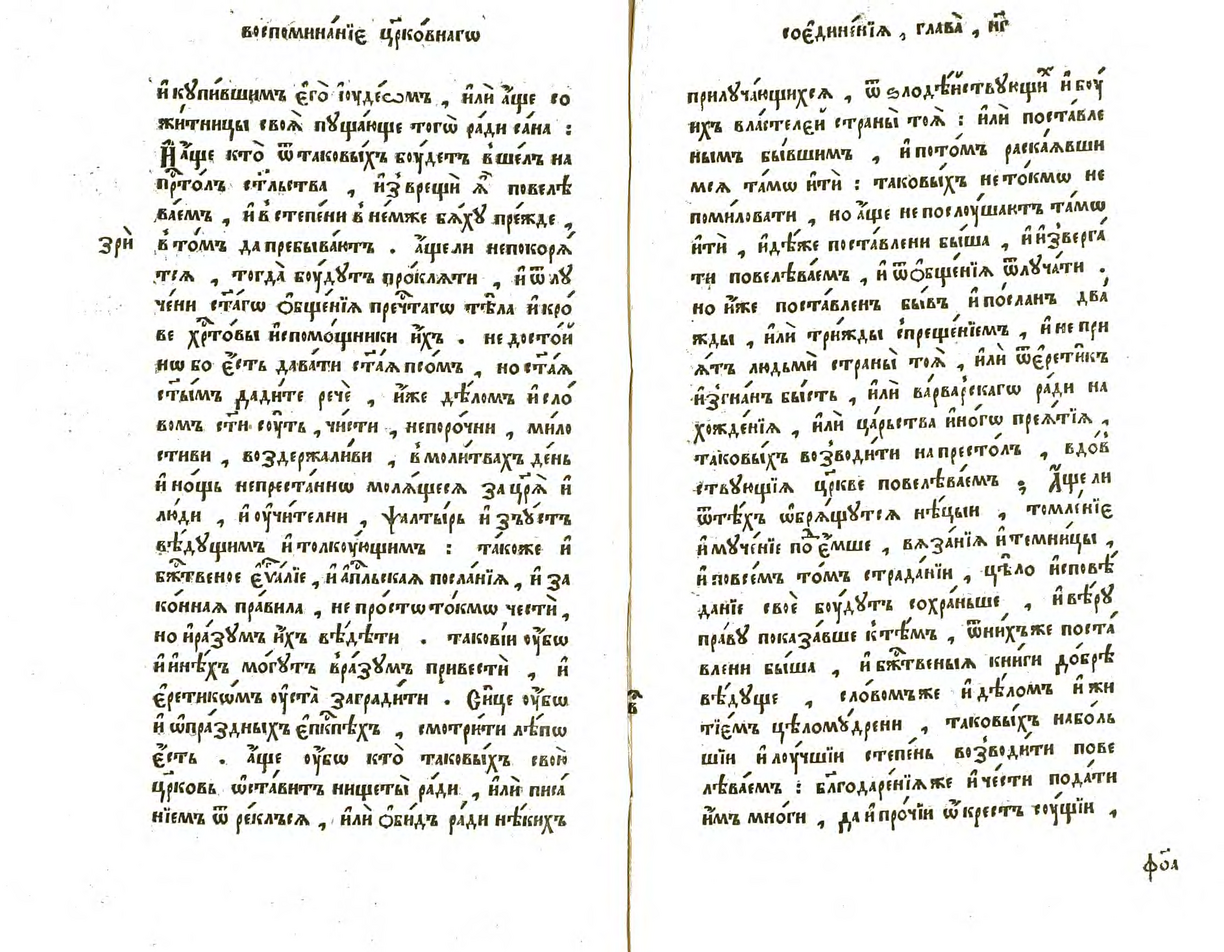 воспомина́нїе цр҃ко́внагѡ
и҆ купи́вшимъ є҆го̀ і҆оуде́ѡмъ , и҆лѝ а҆́ще со
жи́тницы своѧ̀ пуща́юще тогѡ̀ ра́ди са́на :
И҆ а҆́ще кто̀ ѿ таковы́хъ боу́детъ в̾ше́лъ на
прⷭ҇то́лъ ст҃льства , и҆з̾врещѝ ѧ҆̀ повелѣ
ва́емъ , и҆ в̾ степе́ни в̾ не́мже бѧ́ху пре́жде ,
зрѝ
в̾ то́мъ да пребыва́ютъ . а҆́ще ли непокорѧ́
тсѧ , тогда̀ боу́дутъ про́клѧти , и҆ ѿлу
че́ни ст҃а́гѡ ѻ҆бще́нїѧ пречⷭ҇таго тѣ́ла и҆ кро́
ве хрⷭ҇то́вы и҆ спомо́щники и҆́хъ . не досто́й
нѡ бо є҆́сть дава́ти ст҃а́ѧ псо́мъ , но ст҃а́ѧ
ст҃ы́мъ дади́те речѐ , и҆́же дѣ́ломъ и҆ сло́
вомъ ст҃и соу́ть , чи́сти , непоро́чни , ми́ло
стиви , воздержали́ви , в̾ моли́твахъ де́нь
и҆ но́щь непреста́ннѡ молѧ́щесѧ за цр҃ѧ̀ и҆
лю́ди , и҆ оу҆чи́телни , ѱалты́рь и҆з̾ъу́стъ
вѣ́дущимъ и҆ толкоу́ющимъ : та́коже и҆
бж҃е́ственое є҆ѵⷢ҇а́лїе , и҆ а҆пⷭ҇льская посла́нїѧ , и҆ за
ко́нная пра́вила , не про́стѡ то́кмѡ честѝ ,
но и҆ ра́зумъ и҆́хъ вѣ́дѣти . такові́и оу҆́бѡ
и҆ и҆нѣ́хъ мо́гутъ в̾ра́зумъ привестѝ , и҆
є҆ретикѡ́мъ оу҆ста̀ загради́ти . Си́це оу҆́бѡ
и҆ ѡ҆пра́здныхъ є҆пⷭ҇кпѣхъ , смотри́ти лѣ́пѡ
є҆́сть . а҆́ще оу҆́бѡ кто̀ таковы́хъ свою̀
цр҃ковь ѡ҆ста́витъ нищеты̀ ра́ди , и҆лѝ писа́
нїемъ ѿре́клъсѧ , и҆лѝ ѻ҆би́дъ ра́ди нѣ́кихъ
соедине́нїѧ , глава̀ , н҃г
прилуча́ющихсѧ , ѿ ѕлодѣ́йствующиⷯ и҆ боу́
ихъ власте́лей страны̀ тоѧ̀ : и҆лѝ поста́вле
нымъ бы́вшимъ , и҆ пото́мъ раска́ѧвши
мсѧ та́мѡ и҆тѝ : таковы́хъ не то́кмѡ не
поми́ловати , но а҆́ще не послоу́шаютъ та́мѡ
и҆тѝ , и҆дѣ́же поста́влени бы́ша , и҆ и҆з̾верга́
ти повелѣва́емъ , и҆ ѿ ѻ҆бще́нїѧ ѿлуча́ти .
но и҆́же поста́вленъ бы́въ и҆ по́сланъ два́
жды , и҆лѝ три́жды спреще́нїемъ , и҆ не при
ѧ́тъ людьмѝ страны̀ тоѧ̀ , и҆лѝ ѿ є҆рети́къ
и҆з̾гна́нъ бы́сть , и҆лѝ ва́рварскагѡ ра́ди на
хожде́нїѧ , и҆лѝ ца́рьства и҆но́гѡ преѧ́тїѧ ,
таковы́хъ воз̾води́ти на престо́лъ , вдов̾
ствующїѧ цр҃кве повелѣва́емъ ; А҆́ще ли
ѿ тѣ́хъ ѡ҆брѧ́щутсѧ нѣ́цыи , томле́нїе
и҆ муче́нїе под̾е́мше , вѧза́нїѧ и҆ темни́цы ,
и҆ по всѣ́мъ то́мъ страда́нїи , цѣ́ло и҆сповѣ́
данїе своѐ боу́дутъ сохра́ньше , и҆ вѣ́ру
пра́ву показа́вше к̾ тѣ́мъ , ѿ ни́хъже поста́
влени бы́ша , и҆ бж҃е́ственыѧ кни́ги до́брѣ
вѣ́дуще , сло́вомъже и҆ дѣ́ломъ и҆ жи
тїе́мъ цѣлому́дрени , таковы́хъ на бо́ль
шїи и҆ лоу́чшїи степе́нь воз̾води́ти пове
лѣва́емъ : бл҃годаре́нїѧ же и҆ че́сти пода́ти
и҆̀мъ мно́ги , да и҆ про́чїи ѡ҆́крестъ соу́щїи ,
фо҃а